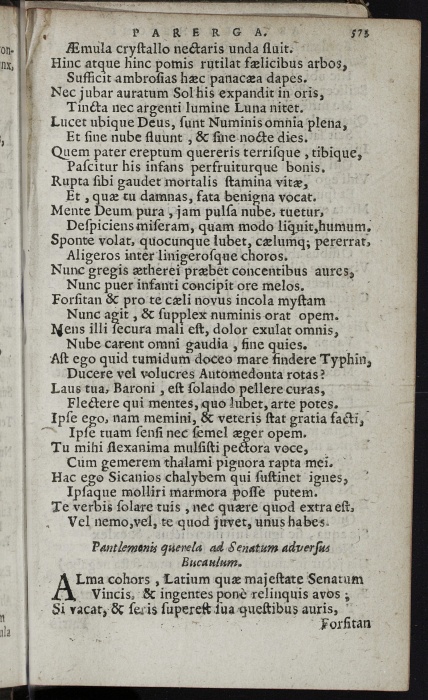 PARERGA. 573
Æmula crystallo nectaris unda fluit.
Hinc atque hinc pomis rutilat fælicibus arbos,
Sufficit ambrosias hæc panacæa dapes.
Nec jubar auratum Sol his expandit in oris,
Tincta nec argenti lumine Luna nitet.
Lucet ubique Deus, sunt Numinis omnia plena,
Et sine nube fluunt, & sine nocte dies.
Quem pater ereptum quereris terrisque, tibique,
Pascitur his infans perfruiturque bonis.
Rupta sibi gaudet mortalis stamina vitæ,
Et, quæ tu damnas, fata benigna vocat.
Mente Deum pura, jam pulsa nube, tuetur,
Despiciens miseram, quam modo liquit, humum.
Sponte volat, quocunque lubet, cælumq; pererrat,
Aligeros inter linigerosque choros.
Nunc gregis ætherei præbet concentibus aures,
Nunc puer infanti concipit ore melos.
Forsitan & pro te cæli novus incola mystam
Nunc agit, & supplex numinis orat opem.
Mens illi secura mali est, dolor exulat omnis,
Nube carent omni gaudia, fine quies.
Ast ego quid tumidum doceo mare findere Typhin,
Ducere vel volucres Automedonta rotas?
Laus tua, Baroni, est solando pellere curas,
Flectere qui mentes, quo lubet, arte potes.
Ipse ego, nam memini, & veteris stat gratia facti,
Ipse tuam sensi nec semel æger opem.
Tu mihi flexanima mulsisti pectora voce,
Cùm gemerem thalami pignora rapta mei.
Hac ego Sicanios chalybem qui sustinet ignes,
Ipsaque molliri marmora posse putem.
Te verbis solare tuis, nec quære quod extra est,
Vel nemo, vel, te quod juvet, unus habes.
Pantlemonis querela ad Senatum adversus
Bucaulum.
ALma cohors, Latium quæ majestate Senatum
Vincis, & ingentes ponè relinquis avos;
Si vacat, & seris superest sua questibus auris,
Forsitan